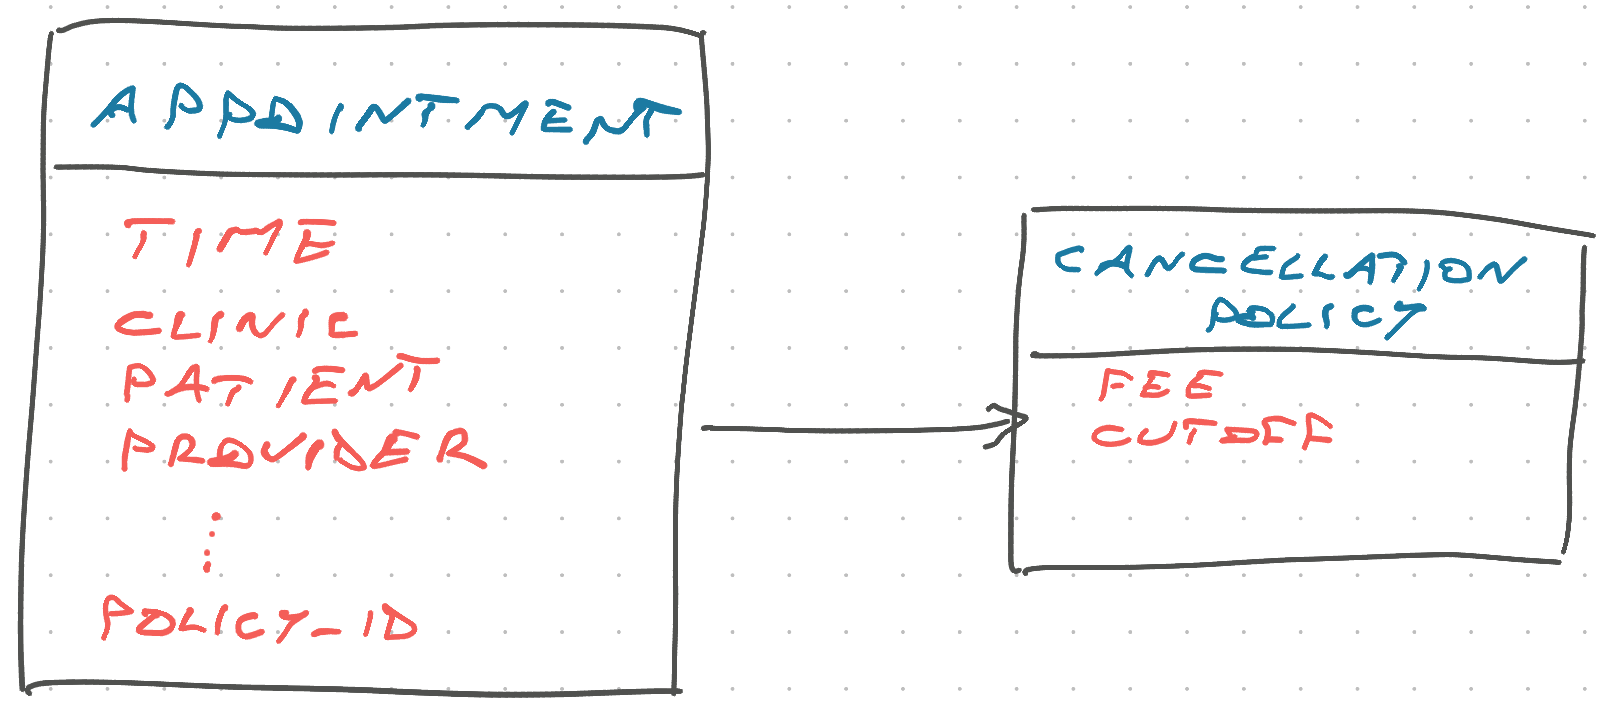 APPOINTMENT
TIME
CLINIC
PATIENT
PROVIDER
POLICY_ID
CANCELLATION
POLICY
FEE
CUTOFF